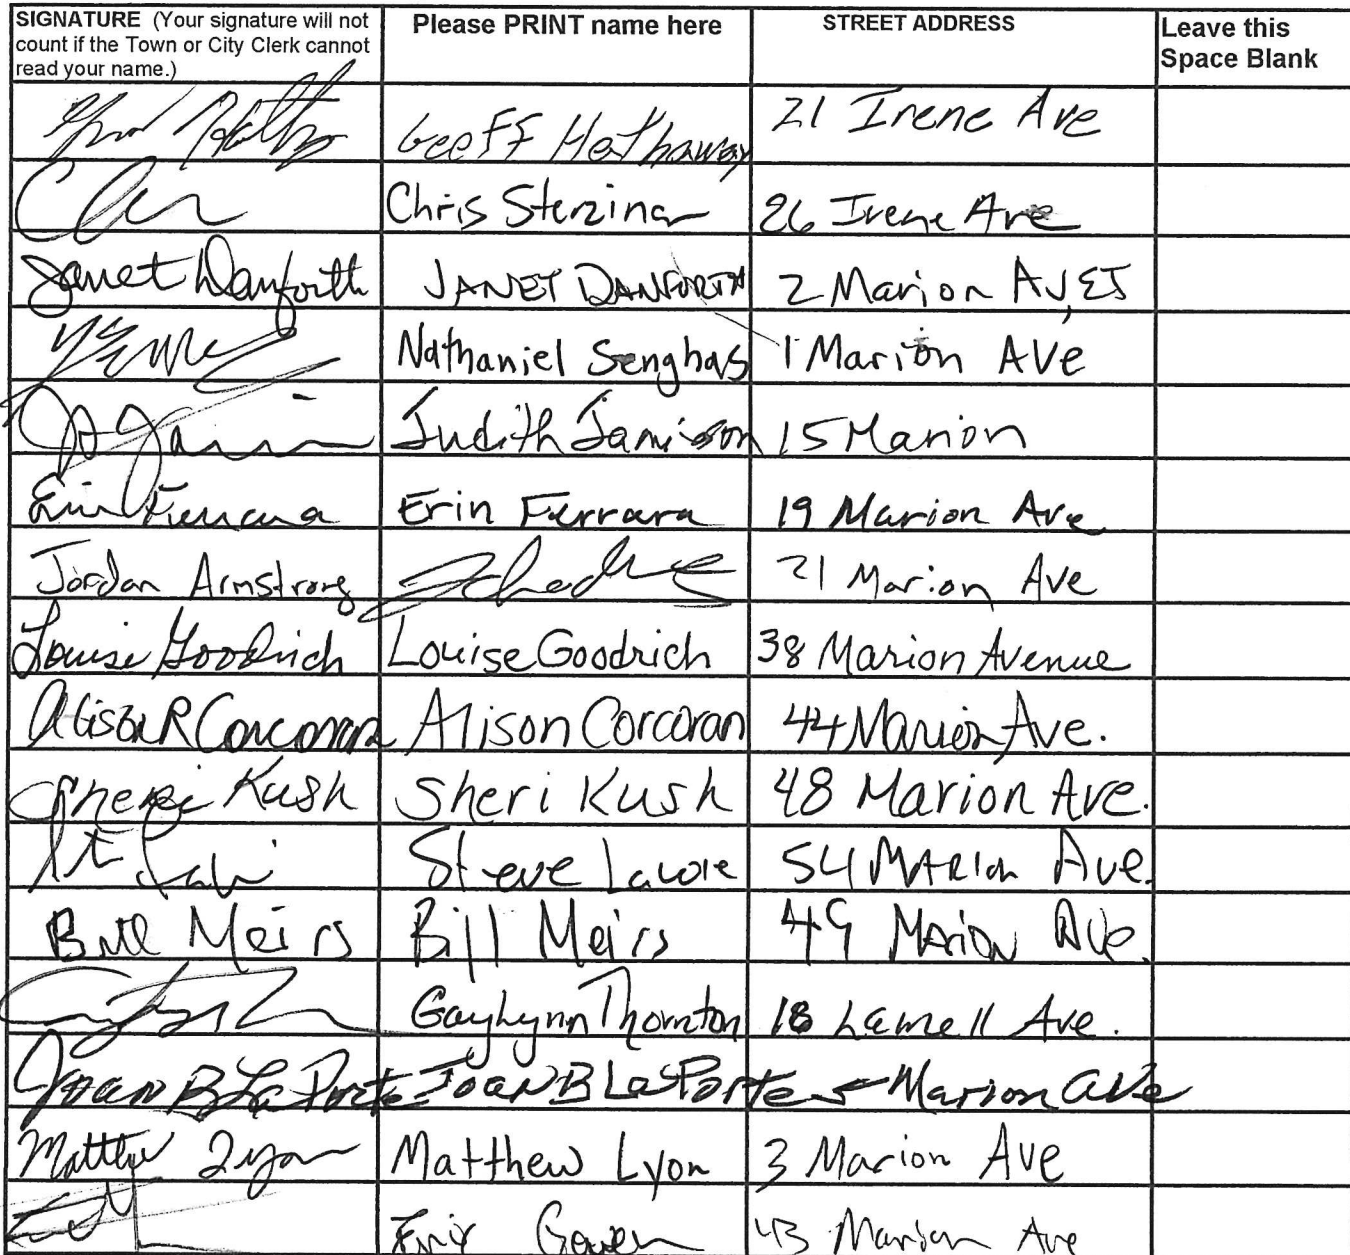 SIGNATURE (Your signature will not count if the Town or City Clerk cannot read your name.) Please PRINT name here STREET ADDRESS Leave this Space Blank
Geoff Hathaway 21 Irene Ave
Chris 26 Irene Ave
Janet Danforth JANET DANFORTH 2 Marion
Nathaniel Senghas 1 Marion AVe
Judith Jamieson 15 Marion
Erin Ferrara Erin Ferrara 19 Marion Ave
Jordan Armstrong 21 Marion Ave
Louise Goodrich Louise Goodrich 38 Marion Avenue
Alison R Corcoran Alison Corcoran 44 Marion Ave.
Sheri Kush Sheri Kush 48 Marion Ave.
Steve 54 Marion Ave.
Bill Meirs Bill Meirs 49 Marion Ave.
GayLynn Thornton 18 Ave.
Joan B LaPorte Joan B LaPorte Marion Ave
Matthew Lyon Matthew Lyon 3 Marion Ave
43 Marion Ave